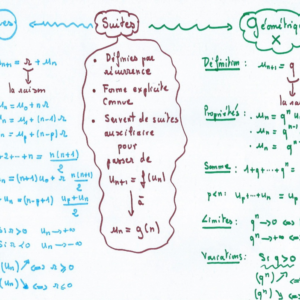 es
Suites
géométriqu
×
u_{n+1} = r + u_n
la raison
u_n = u_0 + n r
u_n = u_1 + (n-1) r
u_n = u_p + (n-p) r
+2+⋯+n = n(n+1)/2
= (n+1) u_0 + r n(n+1)/2
= (n-p+1) (u_p + u_n)/2
Si r>0 u_n → +∞
Si r<0 u_n → -∞
(u_n) ↗ r ≥ 0
(u_n) ↘ r ≤ 0
• Définies par
récurrence
• Forme explicite
connue
• Servent de suites
auxiliaire
pour
passer de
u_{n+1} = f(u_n)
à
u_n = g(n)
Définition : u_{n+1} = q
la
Propriétés : u_n = q^n u
u_n = q^n
u_n = q
Somme : 1+q+⋯+q^n =
p<n: u_p+⋯+u_n =
Limites : q^n → 0
q^n → +∞
Variations : Si q>0
(q^n) ↗
(q^n) ↘